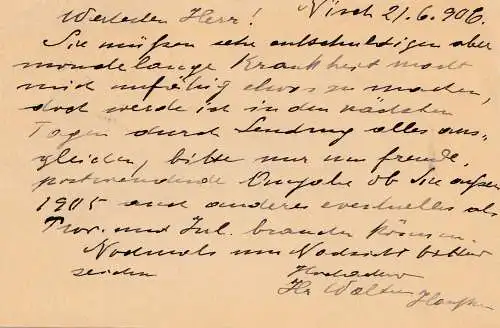 Nisch 21.6.906.
Wertester Herr!
Sie müßen sehr entschuldigen aber
mondelange Krankheit macht
mich unfähig etwas zu machen,
doch werde ich in den nächsten
Tagen durch Sendung alles aus=
gleichen, bitte nur um
postwendende Angabe ob Sie außer
1905 auch anderes eventuelles als
und Jul. brauchen können.
Nochmals um Nachsicht bittend
zeichne
Hochachtend
Walter